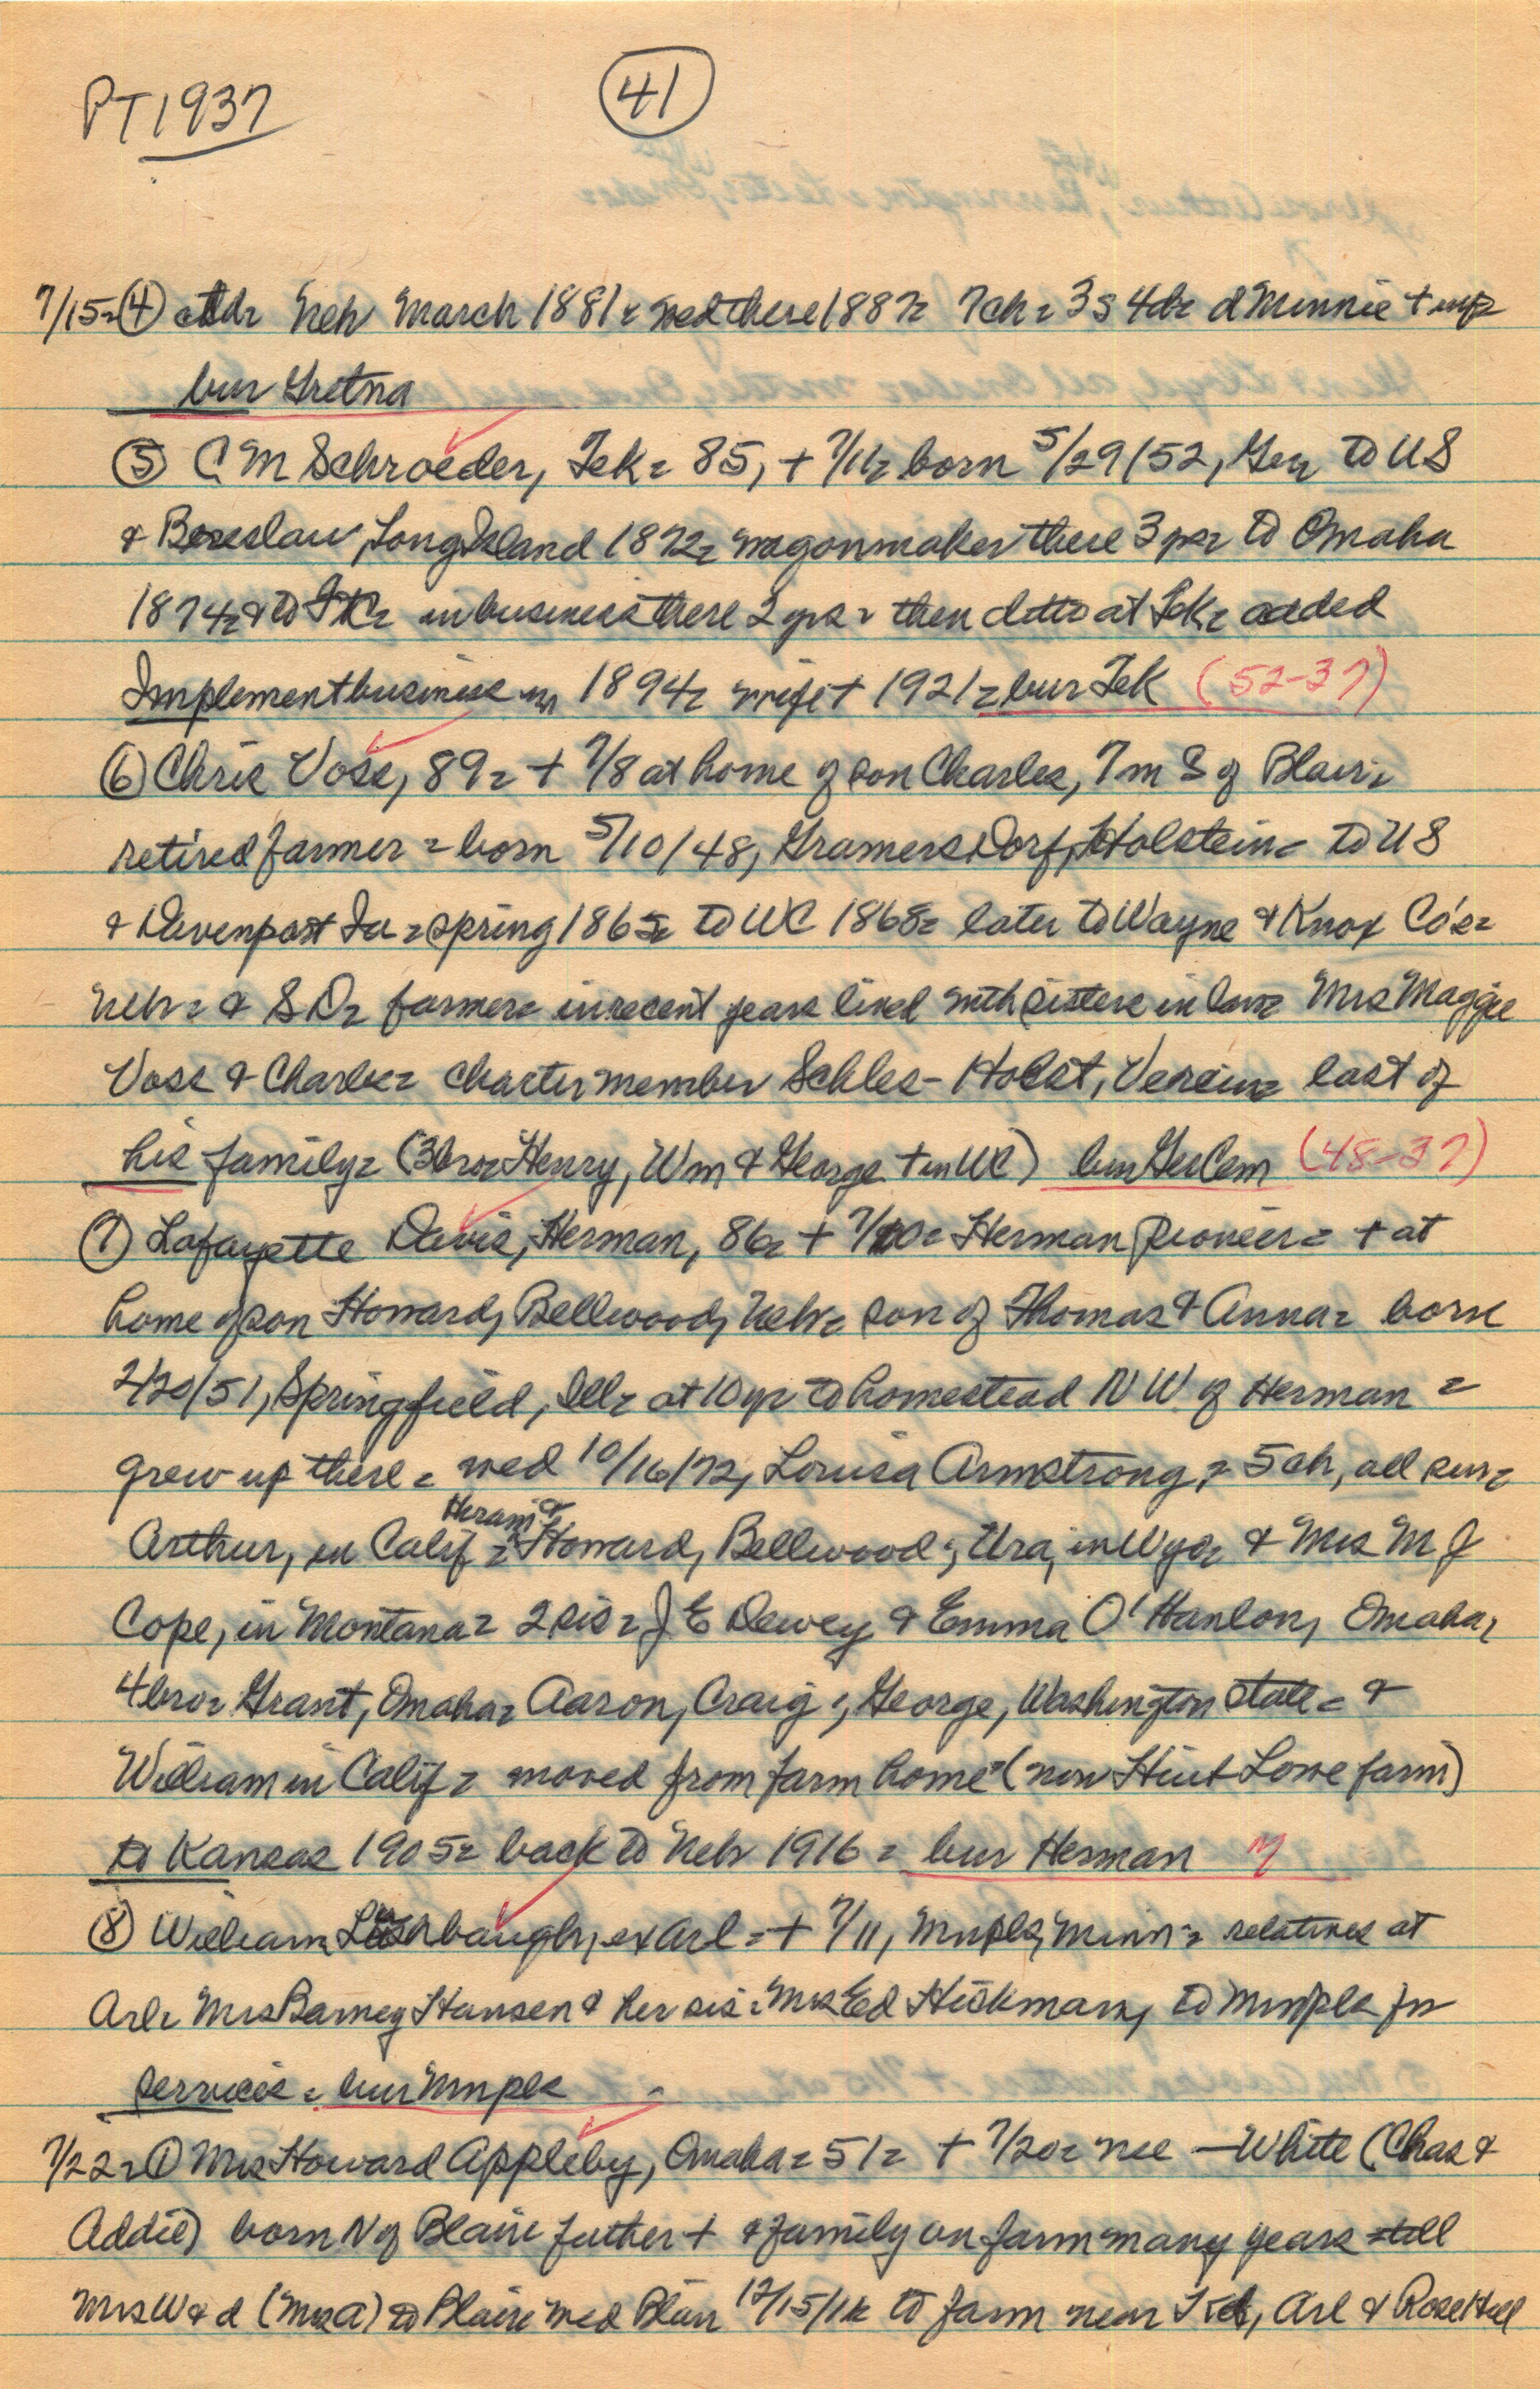 PT 1937
41
7/15= (4) Neb March 1881= wed there 1887= 7ch= 3s 4d= d Minnie + inf=
bur Gretna
(5) C M Schroeder, Tek= 85, + 7/11= born 5/29/52, Ger= to US
& Long Island 1872= wagonmaker there 3 yr= to Omaha
1874= & to in business there 2 yrs= then ditto at Tek= added
Implement business in 1894= wife + 1921= bur Tek (52-37)
(6) Chris Voss, 89= + 7/8 at home of son Charles, 7m S of Blair=
retired farmer= born 5/10/48, Gramersdorf, Holstein= to US
& Davenport Ia= spring 1865= to WC 1868= later to Wayne & Knox Co's=
Neb= & S D= farmer= in recent years lived with sisters in law= Mrs Maggie
Voss & Charles= charter member Schles-Holst, Verein= last of
his family= (3bro= Henry, Wm & George + in WC) bur Ger Cem (48-37)
(7) Lafayette Davis, Herman, 86= + 7/10= Herman pioneer= + at
home of son Howard, Bellwood, Neb= son of Thomas & Anna= born
2/20/51, Springfield, Ill= at 10yr to homestead N W of Herman=
grew up there= wed 10/16/72, Louisa Armstrong,= 5ch, all sur=
Arthur, in Calif= Hiram & Howard, Bellwood; Ura, in Wyo= & Mrs M J
Cope, in Montana= 2 sis= J E Dewey & Emma O'Hanlon, Omaha,
4bro= Grant, Omaha= Aaron, Craig; George, Washington state= &
William in Calif= moved from farm home (now Lowe farm)
to Kansas 1905= back to Neb 1916= bur Herman M
(8) William ex Arl= + 7/11, Mnpls, Minn= relatives at
Arl= Mrs Barney Hansen & her sis= Mrs Ed Hickman, to Mnpls for
services= bur Mnpls
7/22= (1) Mrs Howard Appleby, Omaha= 51= + 7/20= nee — White (Chas &
Addie) born N of Blair father + & family on farm many years till
Mrs W & d (Mrs A) to Blair wed Blair to farm near Arl & Rose Hill